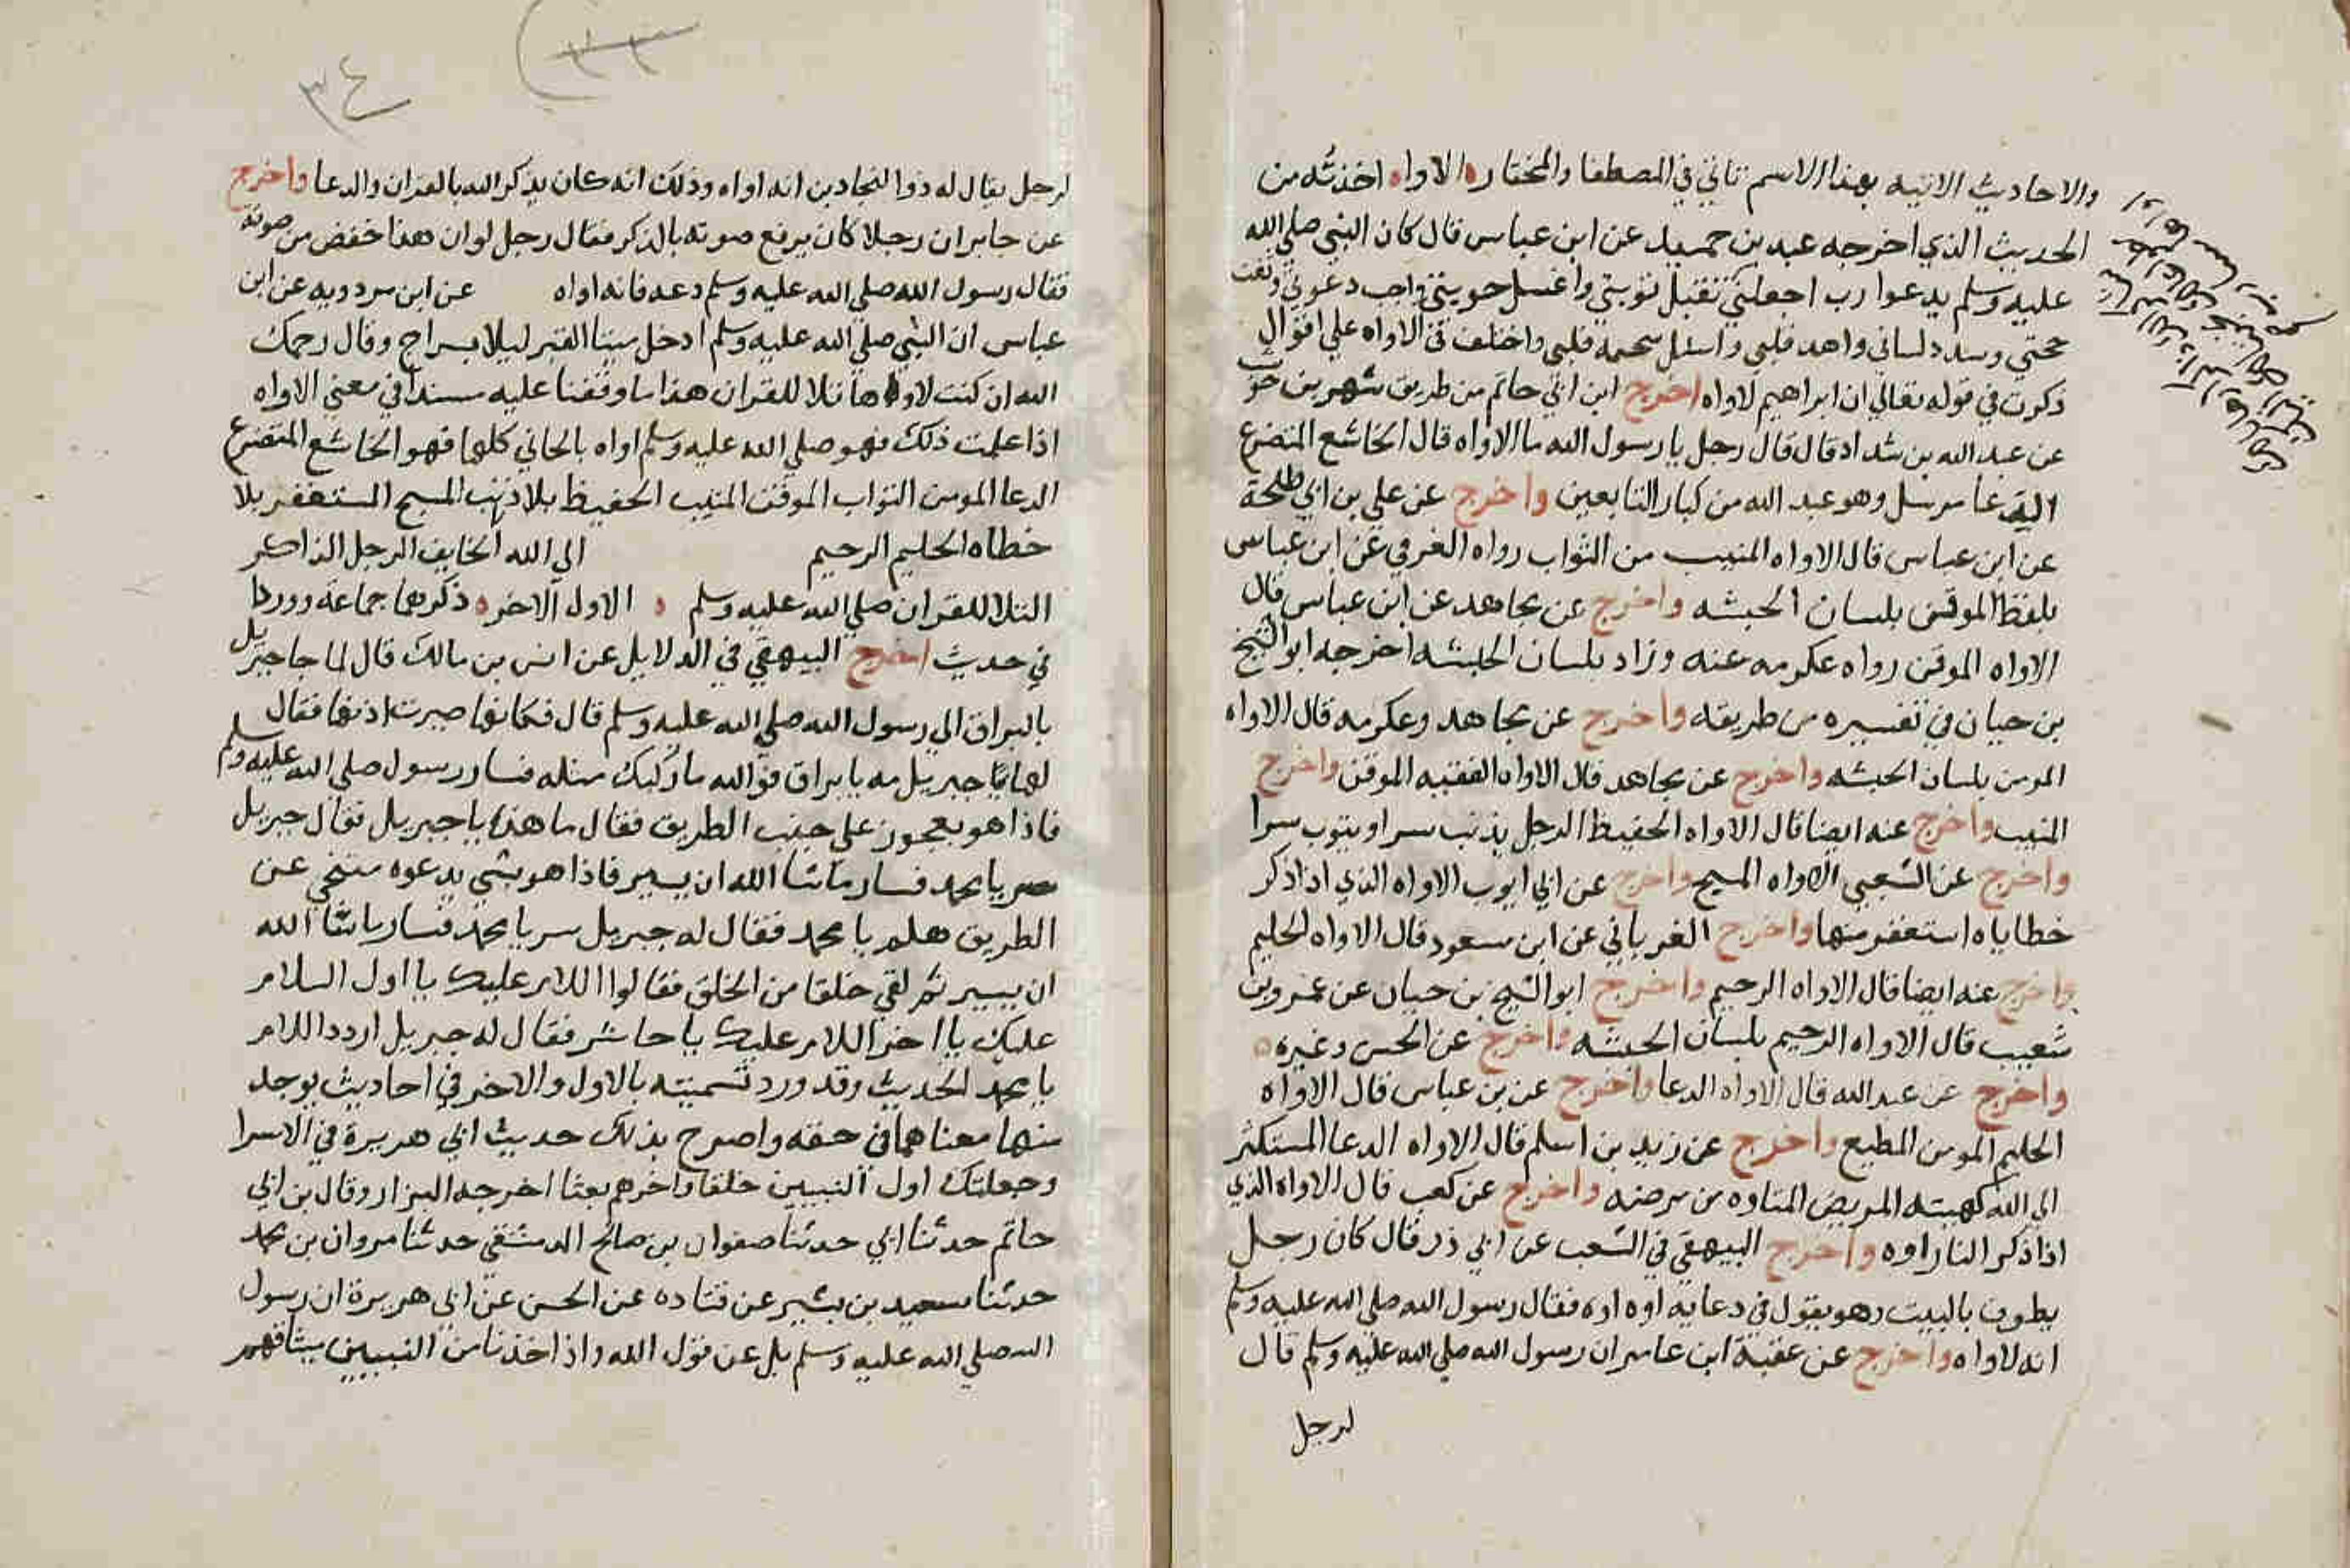 والاحاديث الاتيه بهذا الاسم تاتي في المصطفا والمختاره الاواه اخذته من
الحديث الذي اخرجه عبد بن حميد عن ابن عباس قال كان النبي صلي الله
عليه وسلم يدعوا رب اجعلني تقبل توبتي واغسل حوبتي واجب دعوتي وثبت
حجتي وسدد لساني واهد قلبي واسلل سخمة قلبي واختلف في الاواه علي اقوال
ذكرت في قوله تعالي ان ابراهيم لاواه اخرج ابن ابي حاتم من طريق شهر بن حوشب
عن عبد الله بن شداد قال قال رجل يا رسول الله ما الاواه قال الخاشع المتضرع
الدعا مرسل وهو عبد الله من كبار التابعين واخرج عن علي بن ابي طلحة
عن ابن عباس قال الاواه المنيب من التواب رواه العوفي عن ابن عباس
بلفظ الموقن بلسان الحبشه واخرج عن مجاهد عن ابن عباس قال
الاواه الموقن رواه عكرمه عنه وزاد بلسان الحبشه اخرجه ابو الشيخ
بن حيان في تفسيره من طريقه واخرج عن مجاهد وعكرمه قال الاواه
المومن بلسان الحبشه واخرج عن مجاهد قال الاواه الفقيه الموقن واخرج
المنيب واخرج عنه ايضا قال الاواه الحفيظ الرجل يذنب سرا ويتوب سرا
واخرج عن الشعبي الاواه المسبح واخرج عن ابي ايوب الاواه الذي اذا ذكر
خطاياه استغفر منها واخرج الفريابي عن ابن مسعود قال الاواه الحليم
واخرج عنه ايضا قال الاواه الرحيم واخرج ابو الشيخ بن حيان عن عمرو بن
شعيب قال الاواه الرحيم بلسان الحبشه واخرج عن الحسن وغيره
واخرج عن عبد الله قال الاواه الدعا واخرج عن بن عباس قال الاواه
الحليم المومن المطيع واخرج عن زيد بن اسلم قال الاواه الدعا المستكثر
الي الله كهيته المريض المتاوه من مرضه واخرج عن كعب قال الاواه الذي
اذا ذكر النار اوه واخرج البيهقي في الشعب عن ابي ذر قال كان رجل
يطوف بالبيت وهو يقول في دعايه اوه اوه فقال رسول الله صلي الله عليه وسلم
انه لاواه واخرج عن عقبة ابن عامر ان رسول الله صلي الله عليه وسلم قال
لرجل
٣٤
لرجل يقال له ذوا النجادين انه اواه وذلك انه كان يذكر الله بالقران والدعا واخرج
عن جابر ان رجلا كان يرفع صوته بالذكر فقال رجل لو ان هذا خفض من صوته
فقال رسول الله صلي الله عليه وسلم دعه فانه اواه عن ابن مردويه عن ابن
عباس ان النبي صلي الله عليه وسلم ادخل ميتا القبر ليلا بسراج وقال رحمك
الله ان كنت لاواها تلا للقران هذا ما وقفنا عليه مسندا في معني الاواه
اذا علمت ذلك فهو صلي الله عليه وسلم اواه بالحاني كلها فهو الخاشع المتضرع
الدعا المومن التواب الموقن المنيب الحفيظ بلا ذنب المسبح المستغفر بلا
خطاه الحليم الرحيم الي الله الخايف الرجل الذاكر
التلا للقران صلي الله عليه وسلم ه الاول الاخره ذكرهما جماعة ووردا
في حديث اخرج البيهقي في الدلايل عن انس بن مالك قال لما جا جبريل
بالبراق الي رسول الله صلي الله عليه وسلم قال فكانها صرت اذنها فقال
لها يا جبريل مه يا براق فوالله ما ركبك مثله فسار رسول صلي الله عليه وسلم
فاذا هو بعجوز علي جنب الطريق فقال ما هذه يا جبريل فقال جبريل
سر يا محمد فسار ما شا الله ان يسير فاذا هو بشي يدعوه متنحي عن
الطريق هلم يا محمد فقال له جبريل سر يا محمد فسار ما شا الله
ان يسير ثم لقي خلقا من الخلق فقالوا اللام عليك يا اول السلام
عليك يا اخر اللام عليك يا حاشر فقال له جبريل اردد اللام
يا محمد الحديث وقد ورد تسميته بالاول والاخر في احاديث يوجد
منها معناهما في حقه واصرح بذلك حديث ابي هريرة في الاسرا
وجعلتك اول النبيين خلقا واخرهم بعثا اخرجه البزار وقال بن ابي
حاتم حدثنا ابي حدثنا صفوان بن صالح الدمشقي حدثنا مروان بن محمد
حدثنا سعيد بن بشير عن قتاده عن الحسن عن ابي هريرة ان رسول
الله صلي الله عليه وسلم يل عن قول الله واذ اخذنا من النبيين ميثاقهم